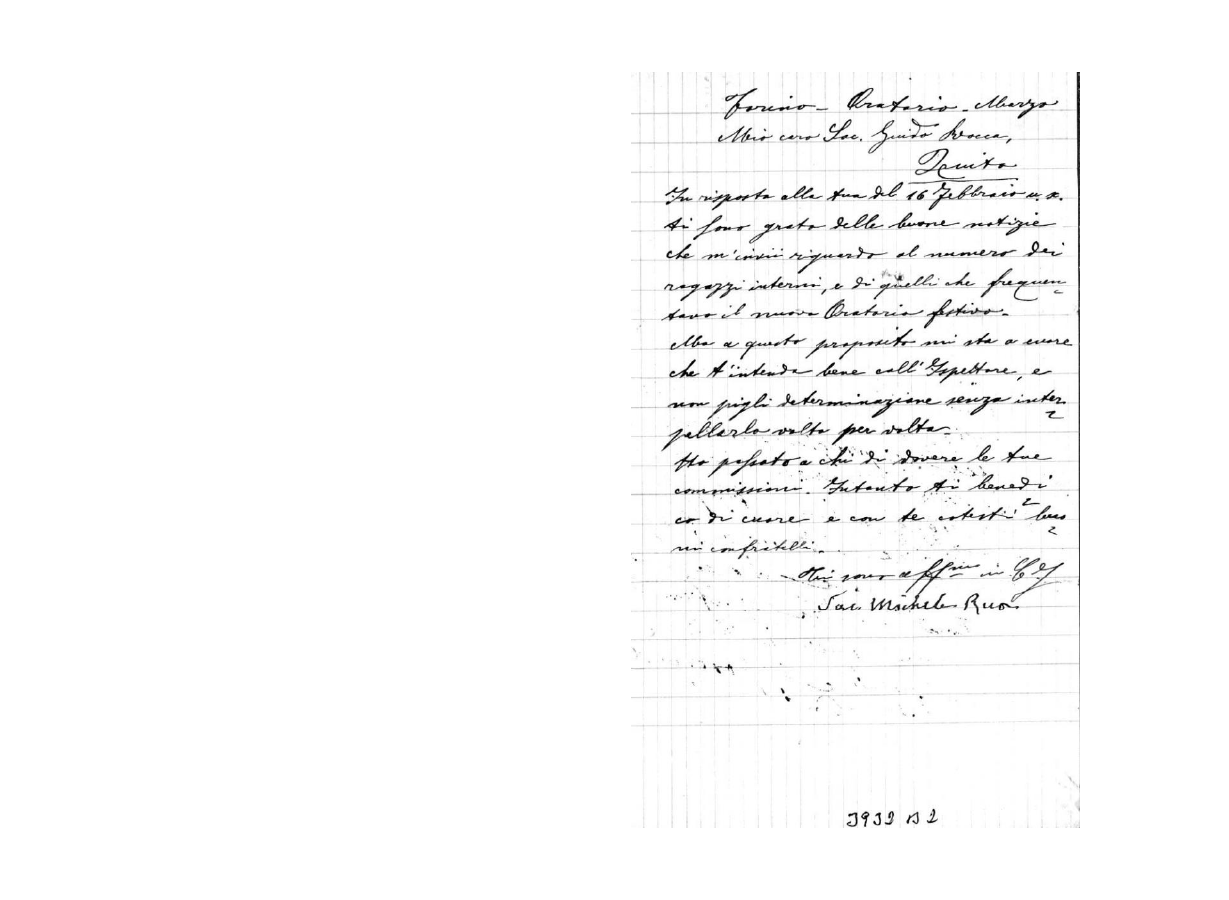 Torino - Oratorio - Marzo
Mio caro Sac. Guido Rocca,
Quito
In risposta alla tua del 16 Febbraio u. s.
ti sono grato delle buone notizie
che m'invii riguardo al numero dei
ragazzi interni, e di quelli che frequen=
tano il nuovo Oratorio festivo.
Ma a questo proposito mi sta a cuore
che t'intenda bene coll'Ispettore, e
non pigli determinazione senza inter=
pellarlo volta per volta.
Ho passato a chi di dovere le tue
commissioni. Intanto ti benedi=
co di cuore e con te cotesti buo=
ni confratelli.
Mi sono aff.mo in C. J.
Sac. Michele Rua
3932 B 2